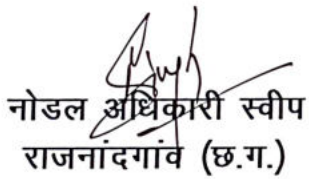 नोडल अधिकारी स्वीप
राजनांदगांव (छ.ग.)